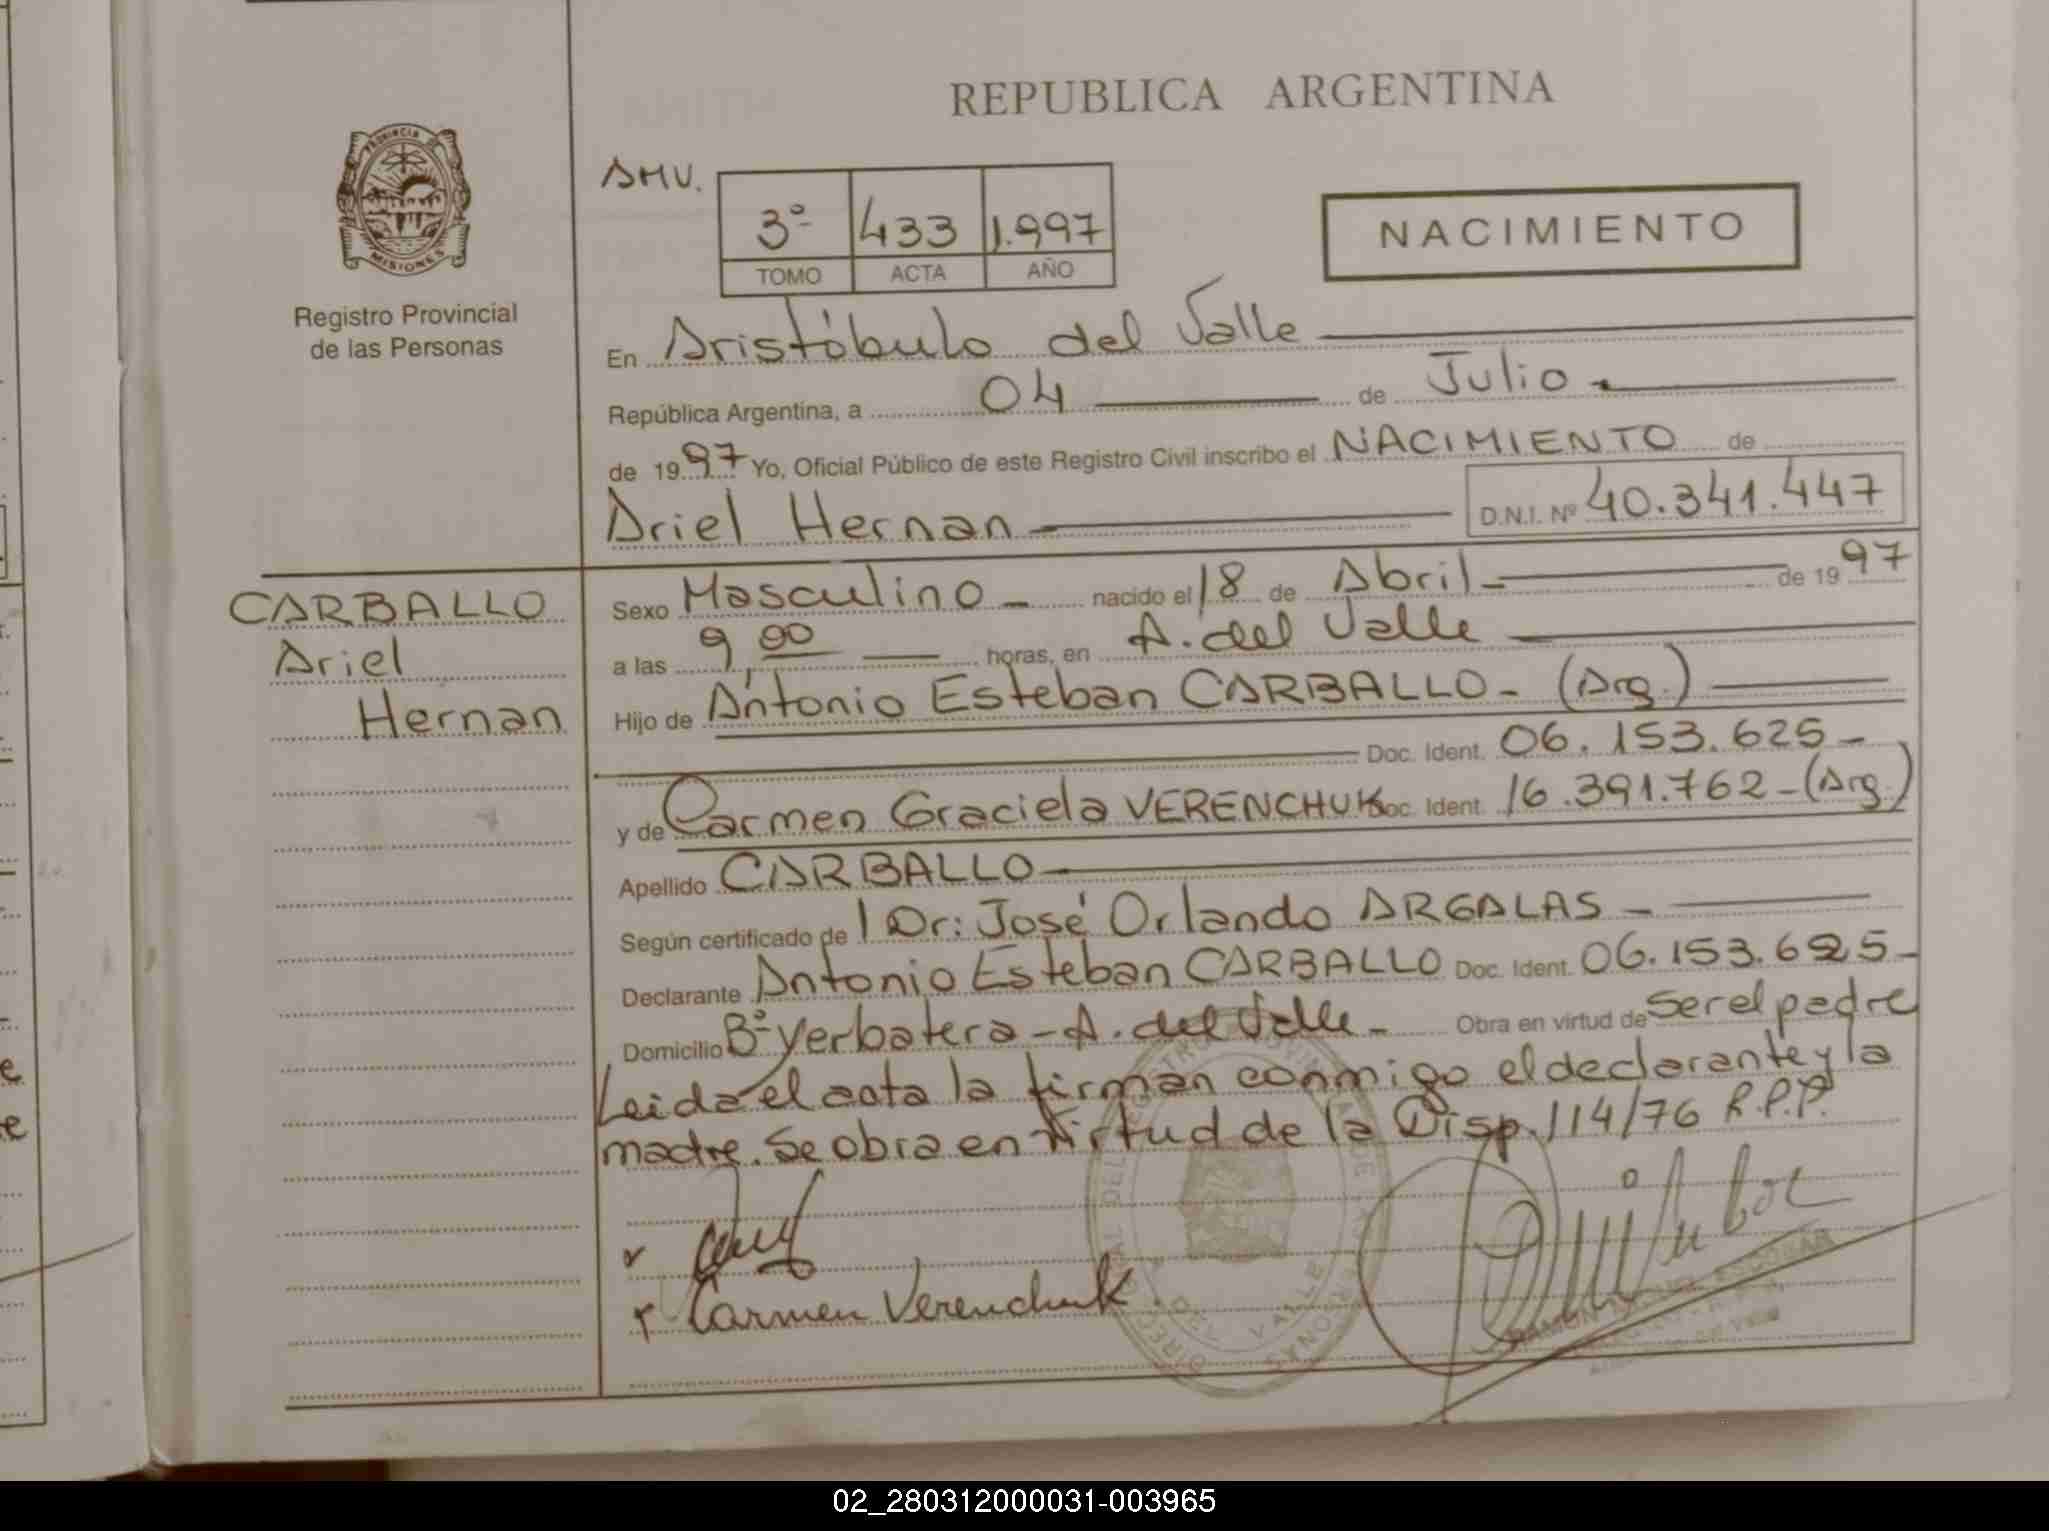 REPUBLICA ARGENTINA
PROVINCIA
MISIONES
Registro Provincial
de las Personas
AMV.
3º 433 1.997
TOMO ACTA AÑO
NACIMIENTO
En Aristóbulo del Valle
República Argentina, a 04 de Julio
de 1997 Yo, Oficial Público de este Registro Civil inscribo el NACIMIENTO de
Ariel Hernan D.N.I. Nº 40.341.447
CARBALLO
Ariel
Hernan
Sexo Masculino nacido el 18 de Abril de 1997
a las 9,00 horas, en A. del Valle
Hijo de Antonio Esteban CARBALLO- (Arg.)
Doc. Ident. 06.153.625-
y de Carmen Graciela VERENCHUK Doc. Ident. 16.391.762-(Arg.)
Apellido CARBALLO
Según certificado de l Dr: José Orlando ARGALAS -
Declarante Antonio Esteban CARBALLO Doc. Ident. 06.153.625-
Domicilio Bº Yerbatera - A. del Valle - Obra en virtud de ser el padre
Leida el acta la firman conmigo el declarante y la
madre. Se obra en virtud de la Disp. 114/76 R.P.P.
Carmen Verenchuk
VALLE
ESCOBAR
02_280312000031-003965